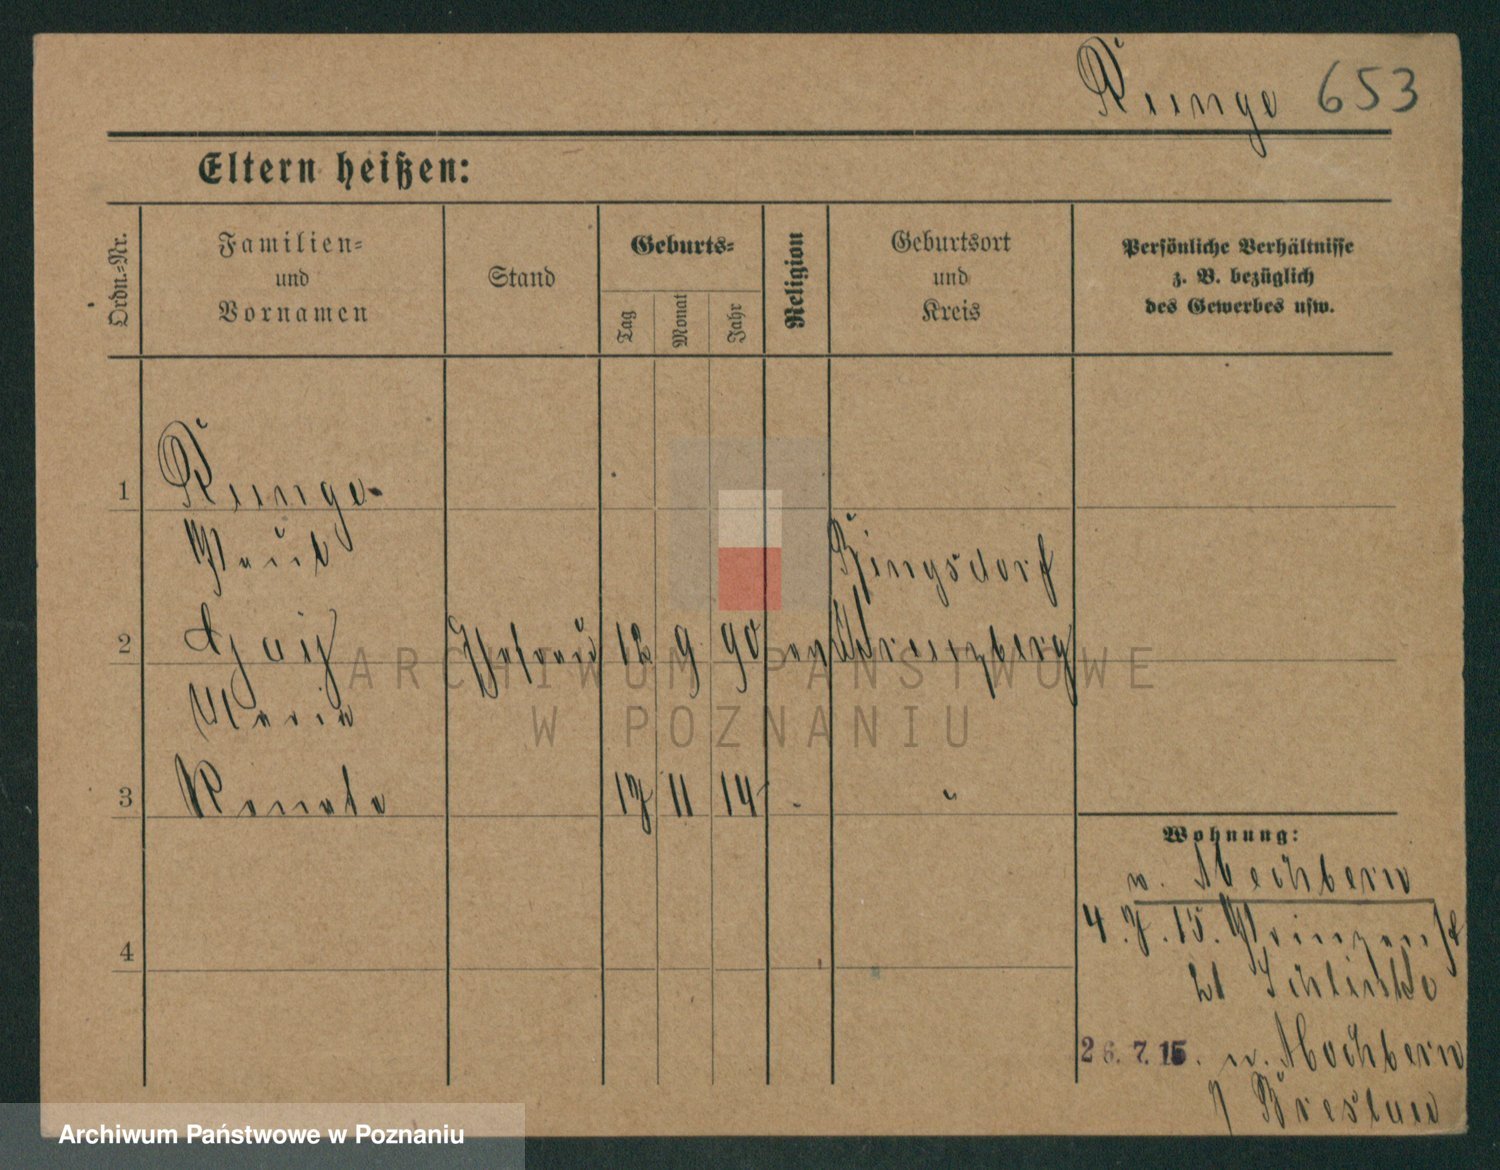 Runge 653
Eltern heißen:
Ordn.-Nr.
Familien-
und
Vornamen
Stand
Geburts-
Tag
Monat
Jahr
Religion
Geburtsort
und
Kreis
Persönliche Verhältnisse
z. B. bezüglich
des Gewerbes usw.
1 Runge
Paul Ringsdorf
2 Ehefrau 12 9 90 ev Kreuzberg
Maria
3 Renate 17 11 14 "
4
Wohnung:
n. Mochbern
4.7.15. Prinzenst
21
26.7.15. n. Mochbern
Breslau
ARCHIWUM PAŃSTWOWE
W POZNANIU
Archiwum Państwowe w Poznaniu